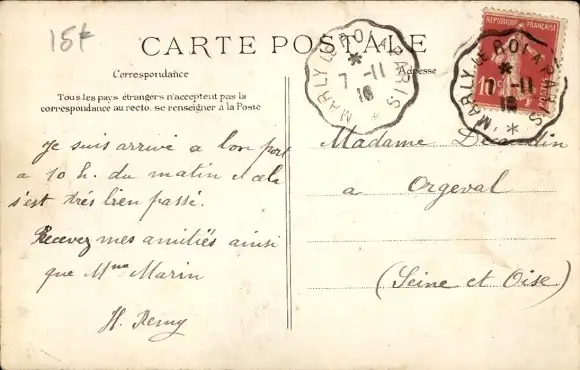 15f
CARTE POSTALE
Correspondance
Adresse
Tous les pays étrangers n'acceptent pas la
correspondance au recto. se renseigner à la Poste
MARLY LE ROI A PARIS
7 -11
16
REPUBLIQUE FRANÇAISE
10c POSTES
MARLY LE ROI A PARIS
7 -11
16
Je suis arrivé a bon port
a 10 h. du matin et cela
s'est trés bien passé.
Recevez mes amitiés ainsi
que Mme Marin
H. Remy
Madame
a Orgeval
(Seine et Oise)